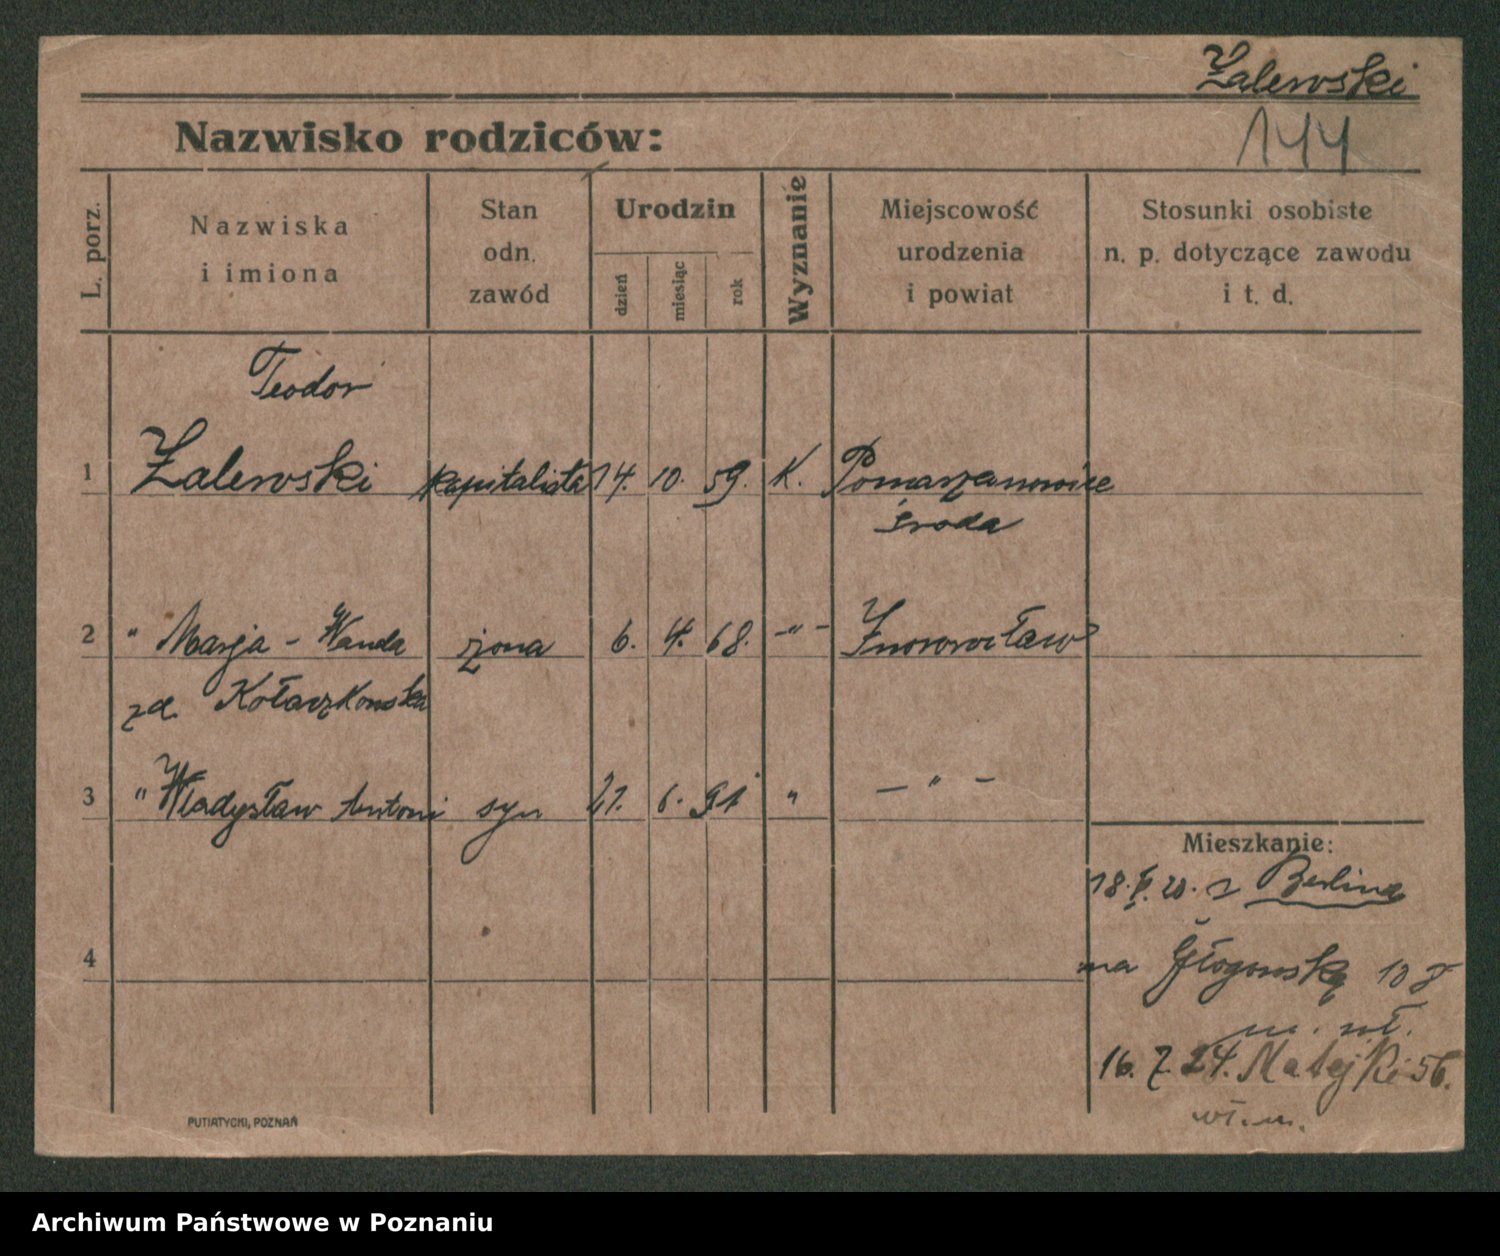 Zalewski
144
Nazwisko rodziców:
L. porz.
Nazwiska
i imiona
Stan
odn.
zawód
Urodzin
dzień
miesiąc
rok
Wyznanie
Miejscowość
urodzenia
i powiat
Stosunki osobiste
n. p. dotyczące zawodu
i t. d.
Teodor
1 Zalewski kapitalista 14. 10. 59. K. Pomarzanowice
Środa
2 " Marja - Wanda żona 6. 4. 68. -"- Inowrocław
zd. Kołaczkowska
3 " Władysław Antoni syn 21. 6. 91 " - " -
Mieszkanie:
18. 20. z Berlina
4
na Głogowską
m. wł.
16. 7. 24. Matejki 56.
wł. m.
PUTIATYCKI, POZNAŃ
Archiwum Państwowe w Poznaniu